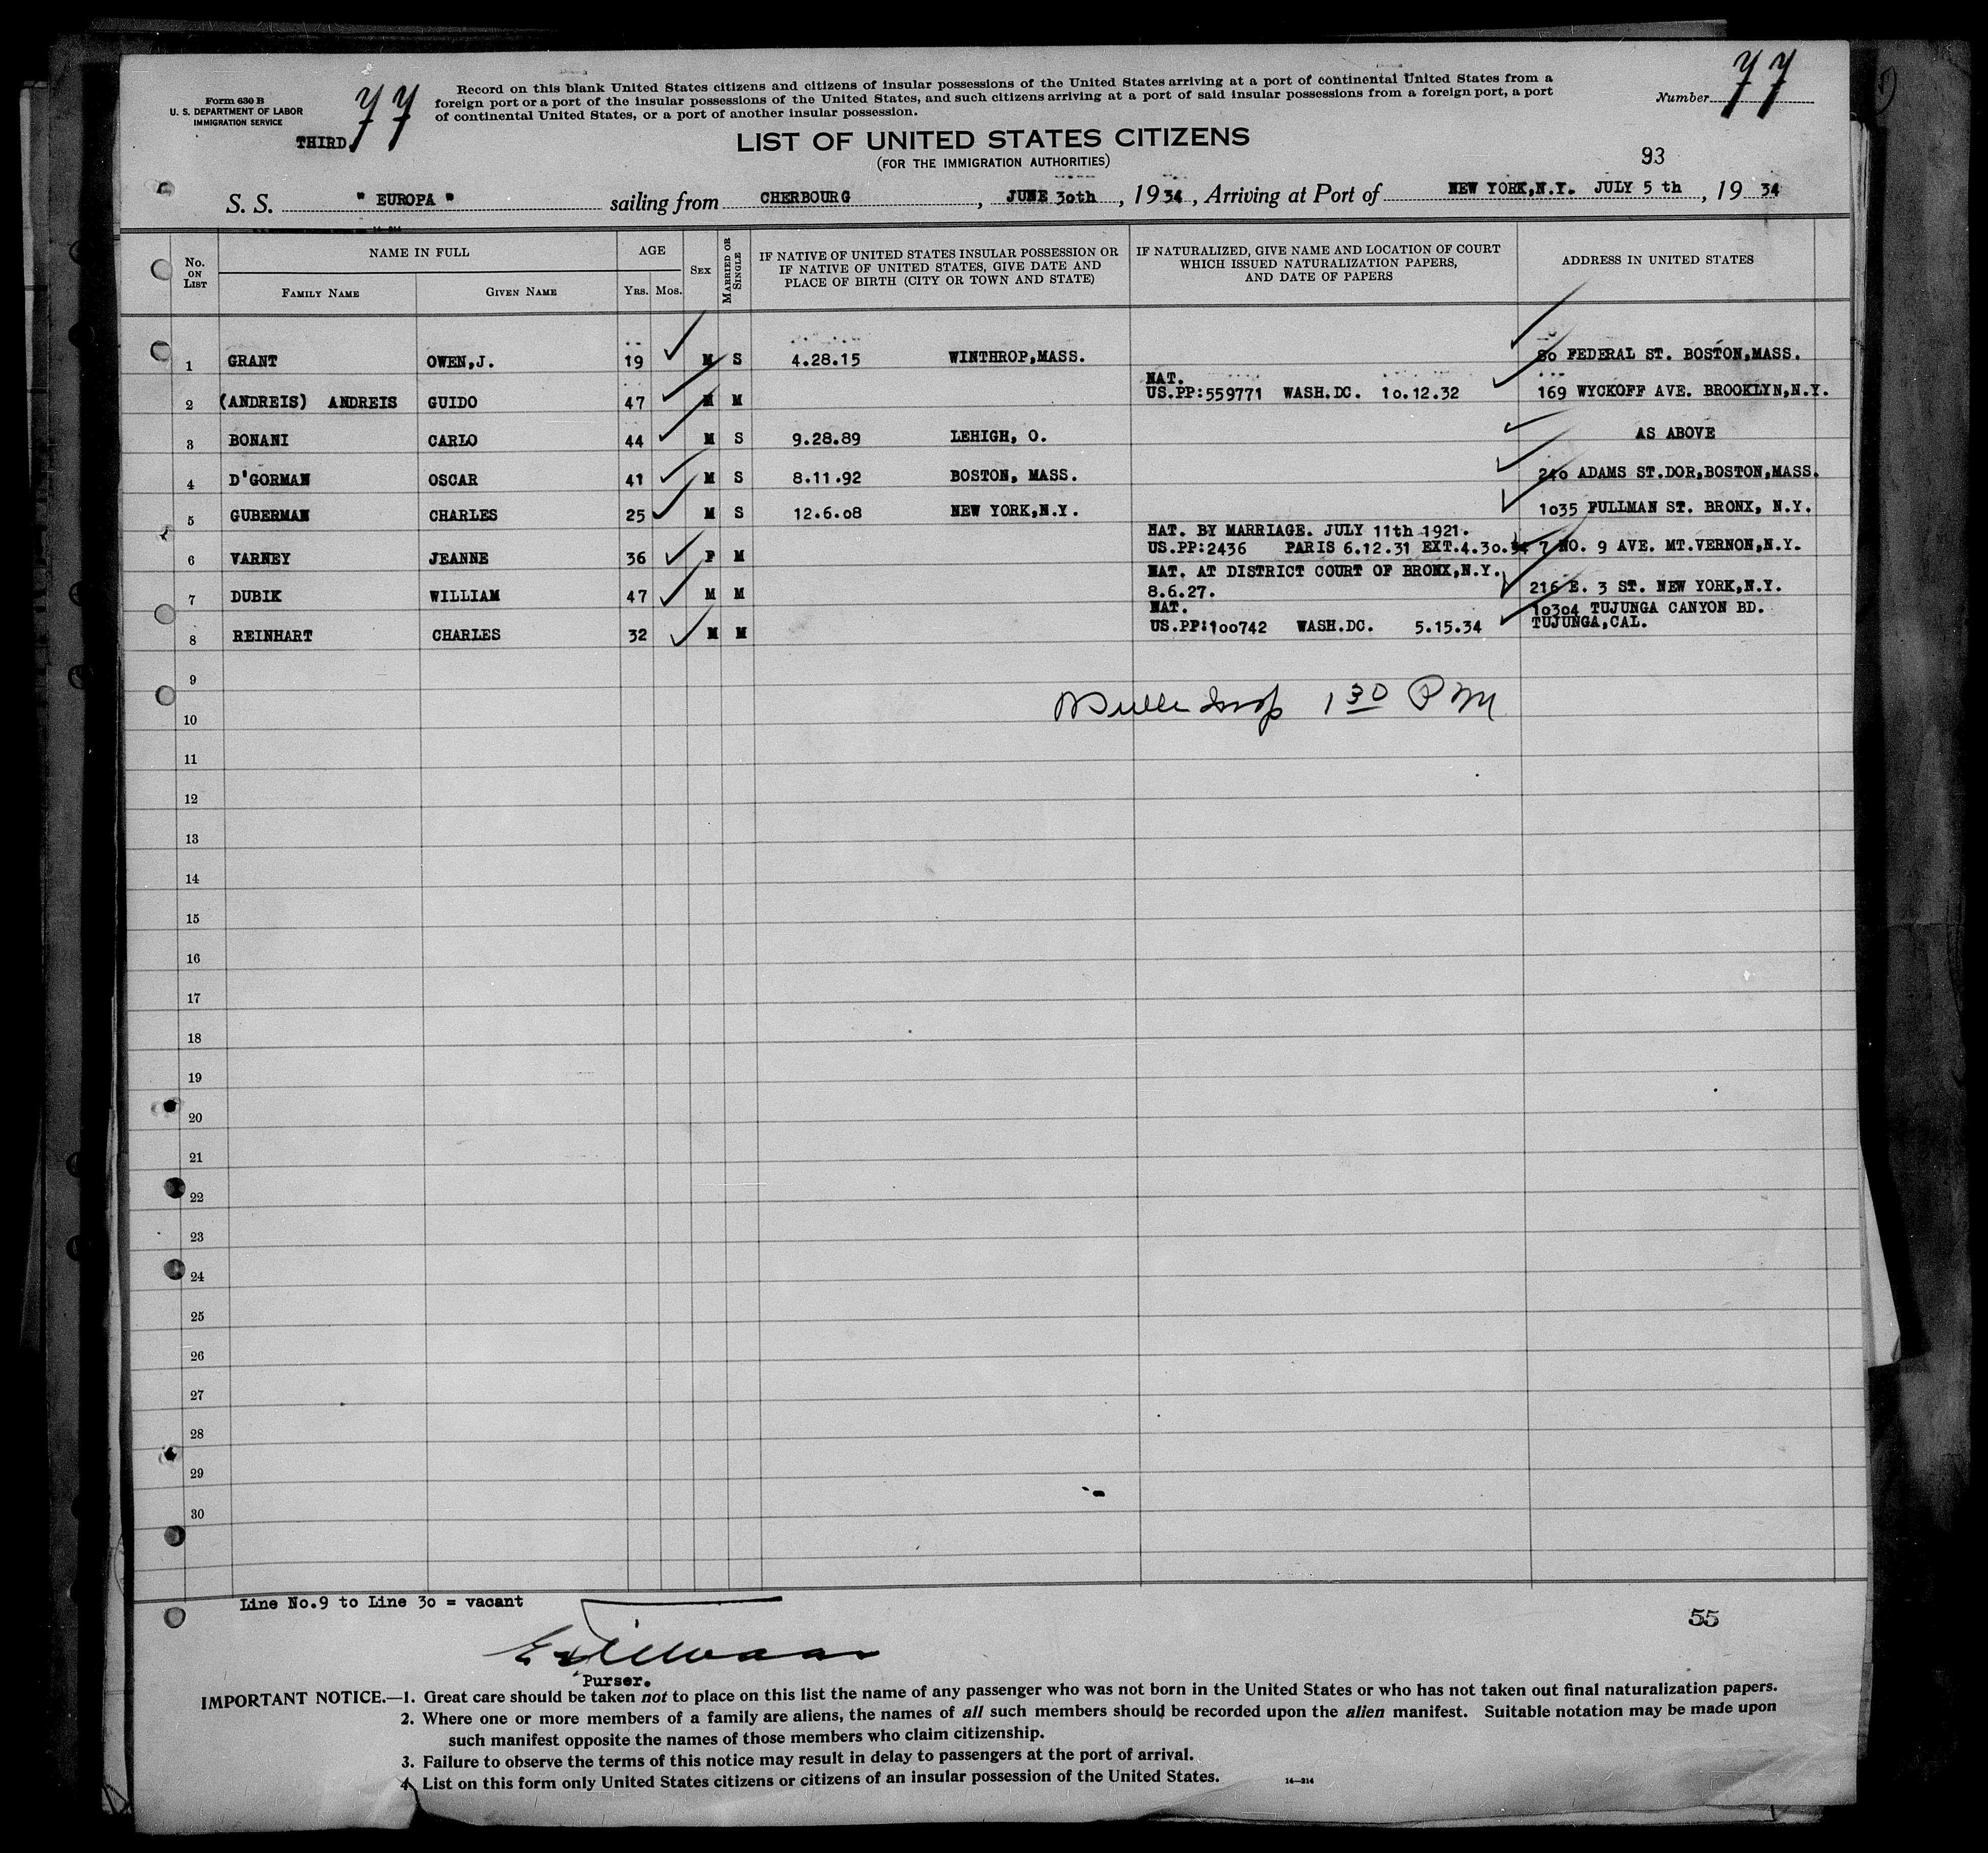 Form 630 B
U. S. DEPARTMENT OF LABOR
IMMIGRATION SERVICE
THIRD 77
Record on this blank United States citizens and citizens of insular possessions of the United States arriving at a port of continental United States from a
foreign port or a port of the insular possessions of the United States, and such citizens arriving at a port of said insular possessions from a foreign port, a port
of continental United States, or a port of another insular possession.
Number 77
LIST OF UNITED STATES CITIZENS
(FOR THE IMMIGRATION AUTHORITIES)
93
S. S. " EUROPA " sailing from CHERBOURG, JUNE 30th, 1934, Arriving at Port of NEW YORK,N.Y. JULY 5 th, 19 34
No. ON LIST
NAME IN FULL
FAMILY NAME GIVEN NAME
AGE
YRS. MOS.
SEX
MARRIED OR SINGLE
IF NATIVE OF UNITED STATES INSULAR POSSESSION OR
IF NATIVE OF UNITED STATES, GIVE DATE AND
PLACE OF BIRTH (CITY OR TOWN AND STATE)
IF NATURALIZED, GIVE NAME AND LOCATION OF COURT
WHICH ISSUED NATURALIZATION PAPERS,
AND DATE OF PAPERS
ADDRESS IN UNITED STATES
1 GRANT OWEN,J. 19 M S 4.28.15 WINTHROP,MASS. 80 FEDERAL ST. BOSTON,MASS.
NAT.
2 (ANDREIS) ANDREIS GUIDO 47 M M US.PP:559771 WASH.DC. 10.12.32 169 WYCKOFF AVE. BROOKLYN,N.Y.
3 BONANI CARLO 44 M S 9.28.89 LEHIGH, O. AS ABOVE
4 D'GORMAN OSCAR 41 M S 8.11.92 BOSTON, MASS. 240 ADAMS ST.DOR,BOSTON,MASS.
5 GUBERMAN CHARLES 25 M S 12.6.08 NEW YORK,N.Y. 1035 FULLMAN ST. BRONX, N.Y.
NAT. BY MARRIAGE. JULY 11th 1921.
6 VARNEY JEANNE 36 F M US.PP:2436 PARIS 6.12.31 EXT.4.30.34 7 NO. 9 AVE. MT.VERNON,N.Y.
NAT. AT DISTRICT COURT OF BRONX,N.Y.
7 DUBIK WILLIAM 47 M M 8.6.27. 216 E. 3 ST. NEW YORK,N.Y.
NAT. 10304 TUJUNGA CANYON BD.
8 REINHART CHARLES 32 M M US.PP:100742 WASH.DC. 5.15.34 TUJUNGA,CAL.
9
10 Insp 1 30 PM
11
12
13
14
15
16
17
18
19
20
21
22
23
24
25
26
27
28
29
30
Line No.9 to Line 30 = vacant
55
Purser.
IMPORTANT NOTICE.—1. Great care should be taken not to place on this list the name of any passenger who was not born in the United States or who has not taken out final naturalization papers.
2. Where one or more members of a family are aliens, the names of all such members should be recorded upon the alien manifest. Suitable notation may be made upon
such manifest opposite the names of those members who claim citizenship.
3. Failure to observe the terms of this notice may result in delay to passengers at the port of arrival.
4. List on this form only United States citizens or citizens of an insular possession of the United States.
14—314